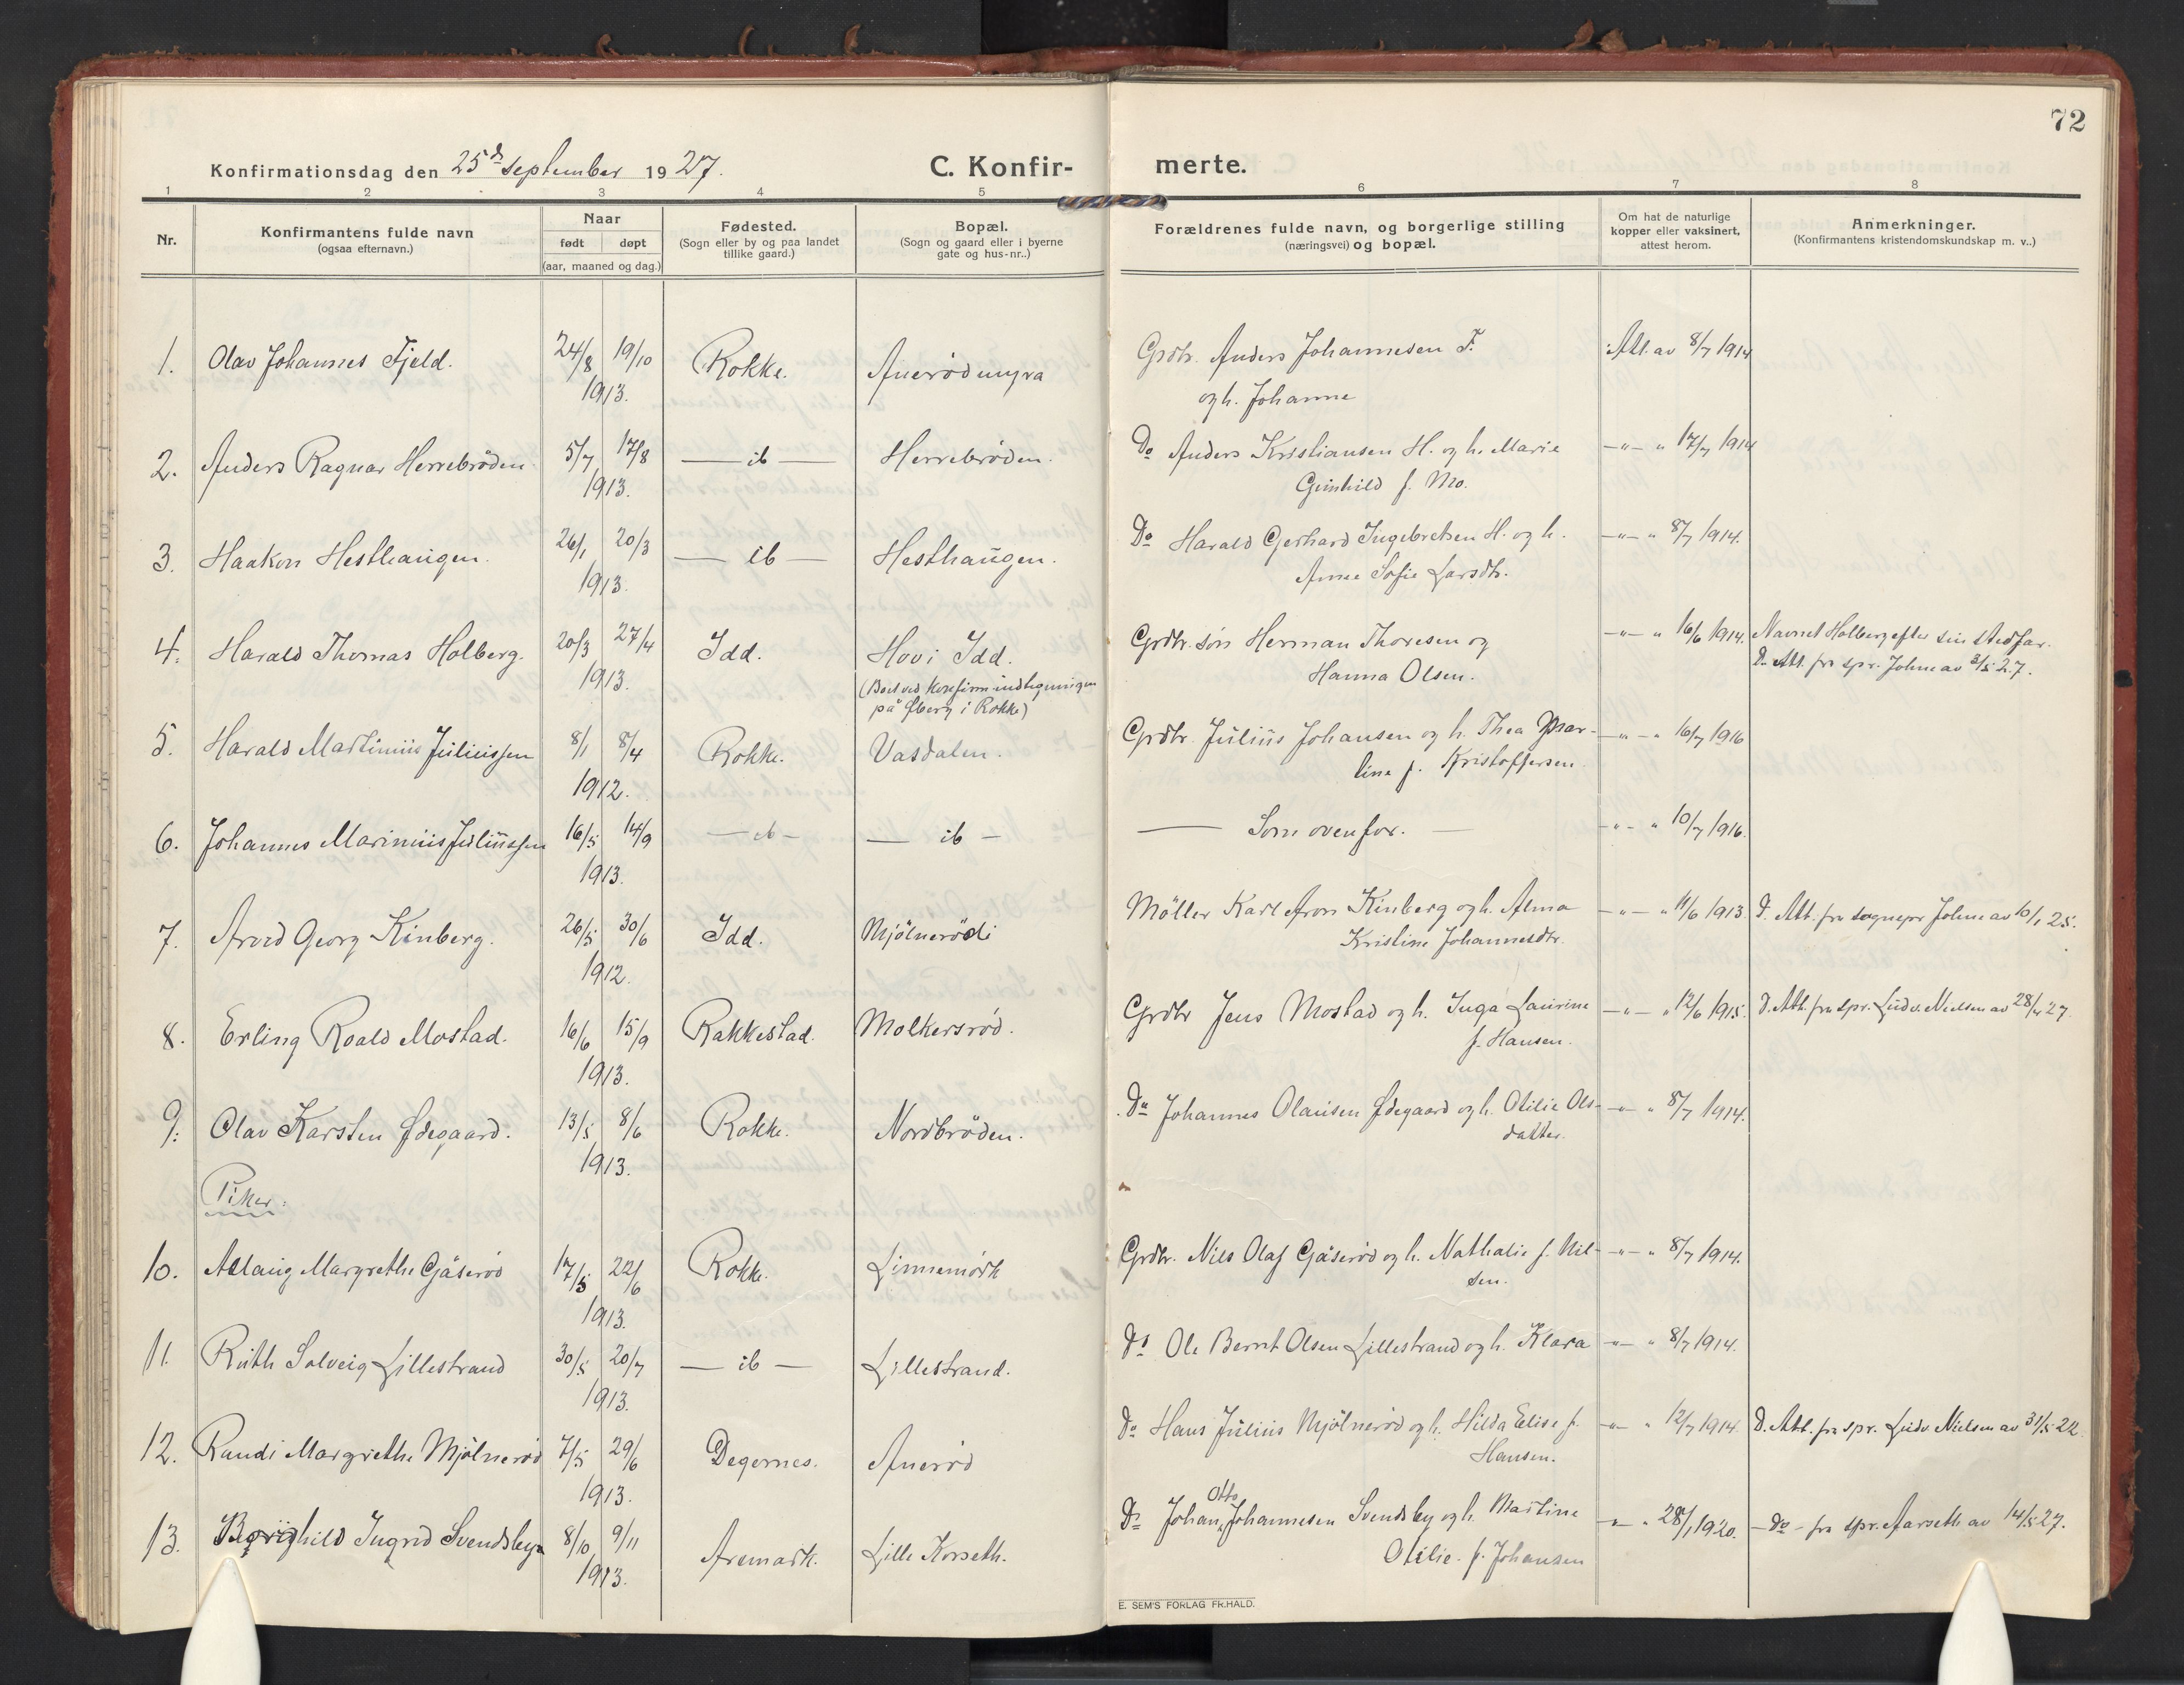 72
Konfirmationsdag den 25de september 1927.
C. Konfir-
merte.
1 2 3 4 5 6 7 8
Nr.
Konfirmantens fulde navn
(ogsaa efternavn.)
Naar
født døpt
(aar, maaned og dag.)
Fødested.
(Sogn eller by og paa landet
tillike gaard.)
Bopæl.
(Sogn og gaard eller i byerne
gate og hus-nr..)
Forældrenes fulde navn, og borgerlige stilling
(næringsvei) og bopæl.
Om hat de naturlige
kopper eller vaksinert,
attest herom.
Anmerkninger.
(Konfirmantens kristendomskundskap m. v..)
1. Olav Johannes Fjeld. 24/8 19/10 Rokke. Anerødmyra Grdbr. Anders Johannesen F. Att. av 8/7 1914
1913. og h. Johanne
2. Anders Ragnar Herrebrøden. 5/7 17/8 — ib — Herrebrøden. Do Anders Kristiansen H. og h. Marie —"— " 17/7 1914
1913. Gunhild f. Mo.
3. Haakon Hesthaugen. 26/1 20/3 — ib — Hesthaugen. Do Harald Gerhard Ingebretsen H. og h. —"— " 8/7 1914.
1913. Anne Sofie Larsdtr.
4. Harald Thomas Holberg. 20/3 27/4 Idd. Hov i Idd. Grdbr. søn Herman Thoresen og —"— " 16/6 1914. Navnet Holberg efter sin stedfar.
1913. Hanna Olsen. D. Att. fra spr. Johne av 3/5 27.
(Boet ved konfirm.
på Øberg i Rokke)
5. Harald Martinius Juliussen 8/1 8/4 Rokke. Vasdalen. Grdbr. Julius Johansen og h. Thea Mar- —"— " 16/7 1916
1912. line f. Kristoffersen
6. Johannes Marinius Juliussen 16/5 14/9 — ib — — ib — — Som ovenfor. — —"— " 10/7 1916.
1913.
7. Arvid Georg Kinberg. 26/5 30/6 Idd. Mjölnerød i Møller Karl Aron Kinberg og h. Alma —"— " 11/6 1913. D. Att. fra sognepr Johne av 10/1 25.
1912. Kristine Johannesdtr.
8. Erling Roald Mostad. 16/6 15/9 Rakkestad. Molkersrød. Grdbr Jens Mostad og h. Inga Laurine —"— " 12/6 1915. D. Att. fra spr. Ludv. Nielsen av 28/4 27.
1913. f. Hansen.
9. Olav Karsten Ødegaard. 13/5 8/6 Rokke. Nordbrøden. Do Johannes Olausen Ødegaard og h. Otilie Ols- —"— " 8/7 1914.
1913. datter.
Piker:
10. Aslaug Margrethe Gåserød 17/5 22/6 Rokke. Linnemörk Grdbr. Nils Olaf Gåserød og h. Nathalie f. Nil- —"— " 8/7 1914.
1913. sen.
11. Ruth Solveig Lillestrand 30/5 20/7 — ib — Lillestrand. Do Ole Bernt Olsen Lillestrand og h. Klara —"— " 8/7 1914.
1913.
12. Randi Margrethe Mjölnerød 7/5 29/6 Degernes. Anerød Do Hans Julius Mjölnerød og h. Hilda Elise f. —"— " 12/7 1914. D. Att. fra spr. Ludv. Nielsen av 31/5 22.
1913. Hansen.
13. Borghild Ingrid Svendsby 8/10 9/11 Aremark. Lille Korseth. Do Johan Otto Johannesen Svendsby og h. Martine —"— " 28/1 1920. — do — fra spr. Aarseth av 14/5 27.
1913. Otilie f. Johansen
E. SEM'S FORLAG FR.HALD.